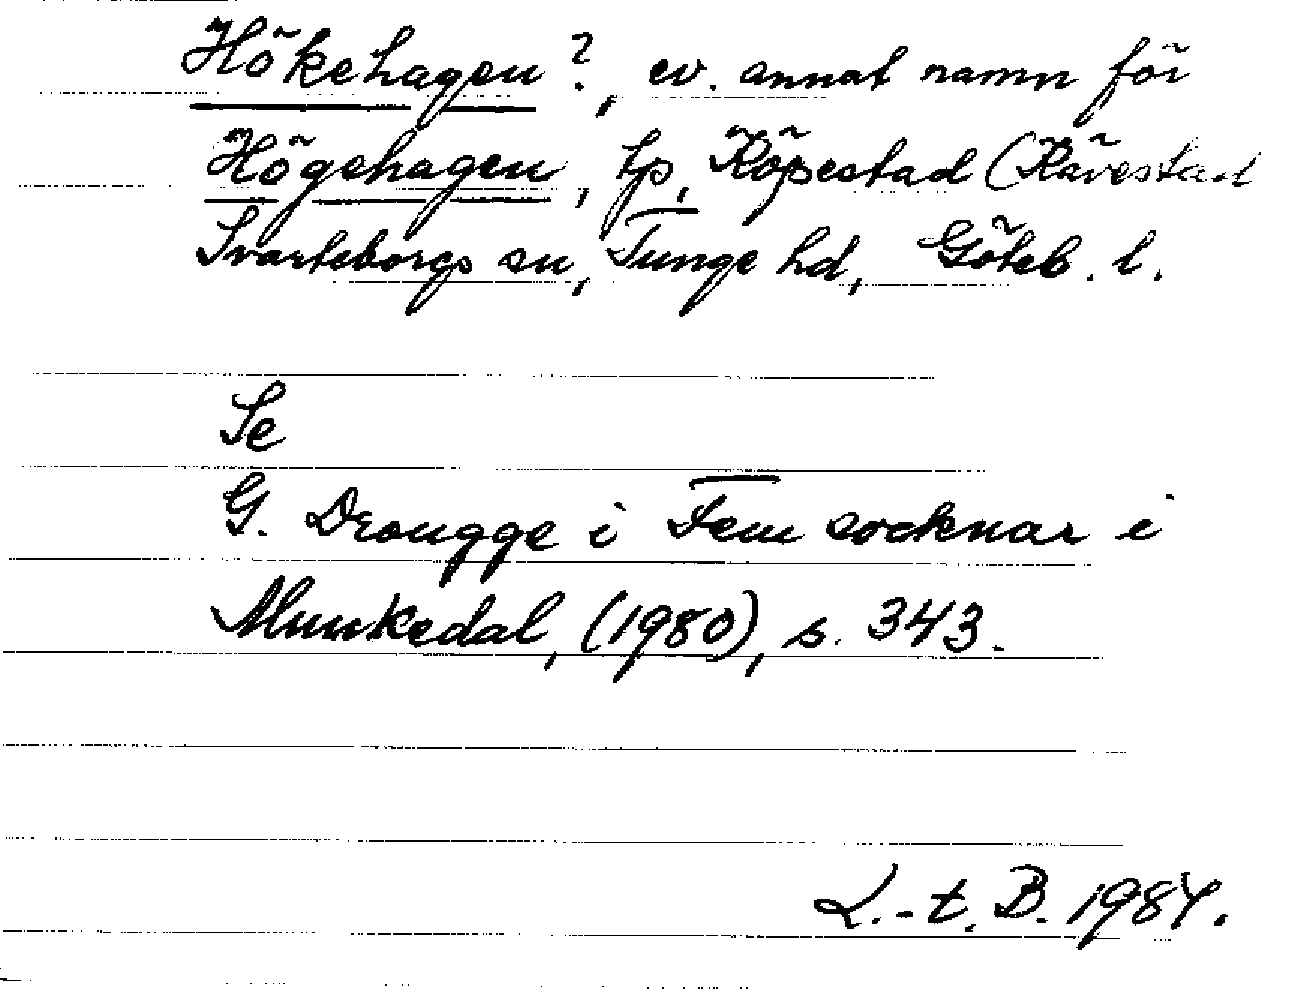 Hökehagen?, ev. annat namn för
Högehagen, tp, Köpestad (Kävestad
Svarteborgs sn, Tunge hd, Göteb. l.
Se
G. Drougge i Fem socknar i
Munkedal, (1980), s. 343.
L.-t. B. 1984.